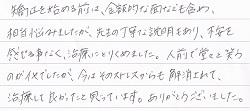 矯正を始める前は、金銭的な面なども含め、
相当悩みましたが、先生の丁寧な説明もあり、不安を
感じる事なく、治療にとりくめました。人前で堂々と笑う
のがイヤでしたが、今はそのストレスからも解消されて、
治療して良かったと思っています。ありがとうございました。